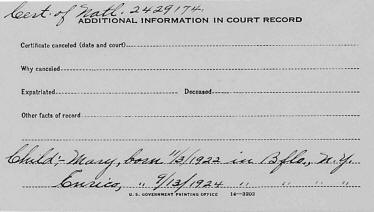 Cert. of Natl. 2429174.
ADDITIONAL INFORMATION IN COURT RECORD
Certificate canceled (date and court)
Why canceled
Expatriated Deceased
Other facts of record
Child:- Mary, born 11/3/1922 in Bflo., N.Y.
Enrico, " 9/13/1924 " " " "
U. S. GOVERNMENT PRINTING OFFICE 14—3203